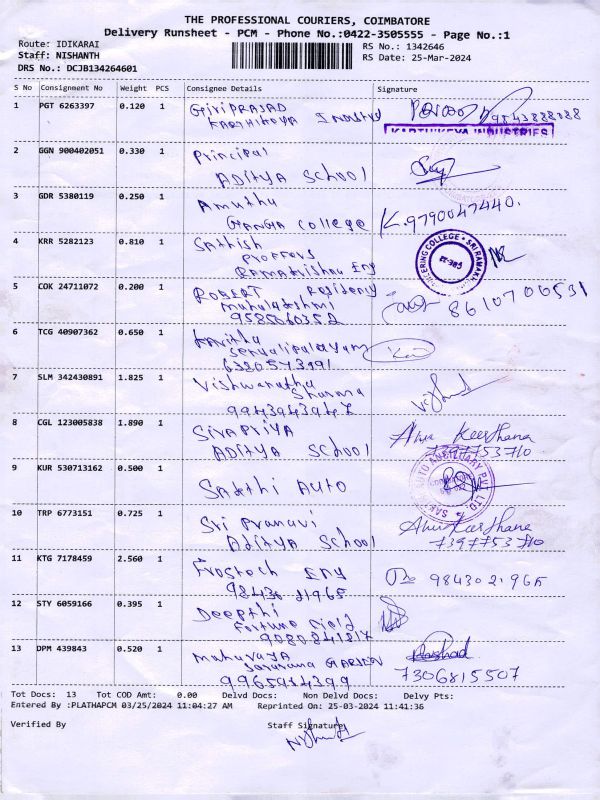 THE PROFESSIONAL COURIERS, COIMBATORE
Delivery Runsheet - PCM - Phone No.:0422-3505555 - Page No.:1
Route: IDIKARAI
RS No.: 1342646
Staff: NISHANTH
RS Date: 25-Mar-2024
DRS No.: DCJB134264601
S No Consignment No Weight PCS Consignee Details Signature
1 PGT 6263397 0.120 1 GiriPRASAD
KARTHIKEYA Industry
9843888088
KARTHIKEYA INDUSTRIES
2 GGN 900402051 0.330 1 Principal
ADITYA School
3 GDR 5380119 0.250 1 Amuthu
GANGA College K.9790047440.
4 KRR 5282123 0.810 1 Sathish
Proffers
Ramakrishna Eng
5 COK 24711072 0.200 1 ROBERT Residency
Mahalakshmi
9585060352 8610706531
6 TCG 40907362 0.650 1 Kavitha
6320573191
7 SLM 342430891 1.825 1 Vishwanatha
Sharma
9943943947
8 CGL 123005838 1.890 1 SivaPriya
ADITYA School
Keerthana
7397753710
9 KUR 530713162 0.500 1 Sakthi AUTO
10 TRP 6773151 0.725 1 Sri Pranavi
ADITYA School
Keerthana
7397753710
11 KTG 7178459 2.560 1 Frostech Eng
9843021965 9843021965
12 STY 6059166 0.395 1 Deepthi
Fortune Field
9080841817
13 DPM 439843 0.520 1
Saravana GARDEN
9965914399 7306815507
Tot Docs: 13 Tot COD Amt: 0.00 Delvd Docs: Non Delvd Docs: Delvy Pts:
Entered By :PLATHAPCM 03/25/2024 11:04:27 AM Reprinted On: 25-03-2024 11:41:36
Verified By Staff Signature